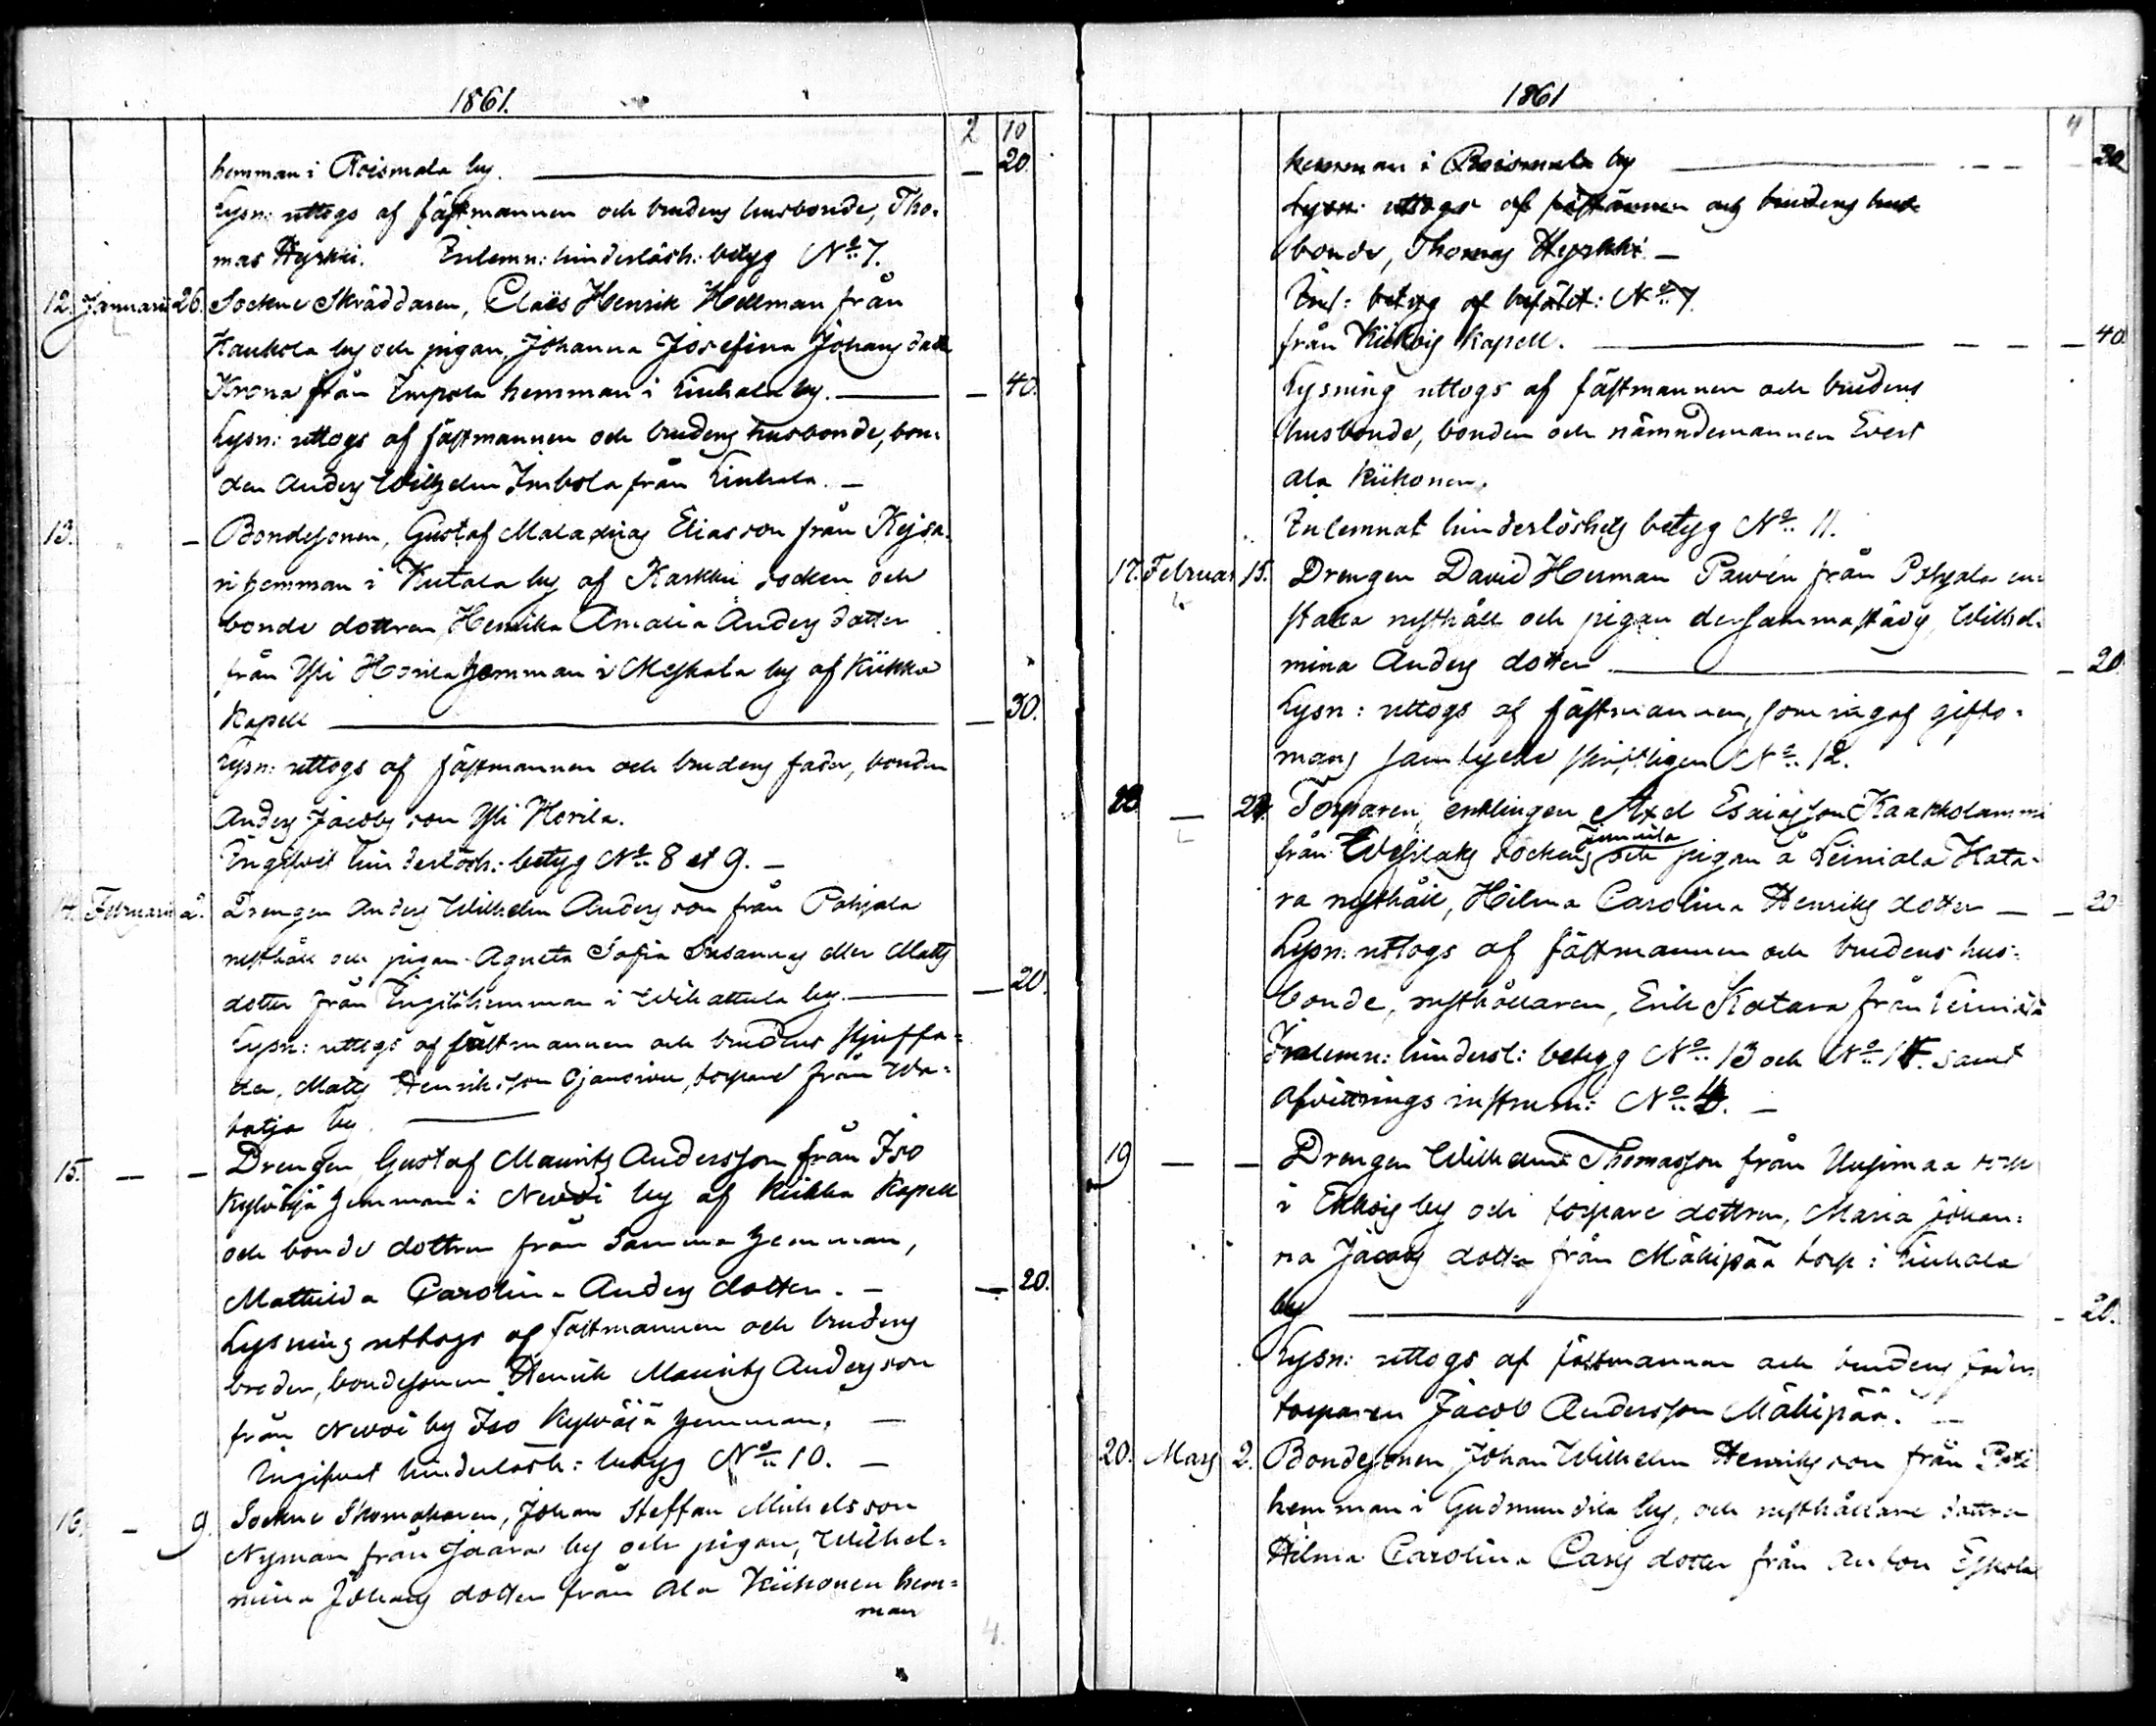 1861.
2 10
hemman i Roismala by. — 20.
Lysn: uttogs af fästmannen och brudens husbonde, Tho-
mas Hyrkki. Inlemn: hinderlösh: betyg No 7.
12. Januarii 26. Sockne Skräddaren, Claës Henrik Hellman från
Haukola by och pigan, Johanna Josefina Johans datter
Krona från Impola hemman i Liuhala by. — 40.
Lysn: uttogs af fästmannen och brudens husbonde, bon-
den Anders Wilhelm Imbola från Liuhala. —
13. — Bondesonen, Gustaf Malachias Eliasson från Kejsa-
ri hemman i Kutala by af Karkku socken och
bonde dottren Henrika Amalia Anders dotter
från Yli Horila hemman i Meskala by af Kiikka
Kapell — 30.
Lysn: uttogs af fästmannen och brudens fader, bonden
Anders Jacobsson Yli Horila.
Ingifvit hinderlösh: betyg No 8 et 9. —
14. Februarii 2. Drengen Anders Wilhelm Andersson från Pohjala
rusthåll och pigan Agneta Sofia Susannas eller Matts
dotter från hemman i Wihattula by. — 20.
Lysn: uttogs af fästmannen och brudens stjuffa-
der, Matts Henriksson Ojansivu, torpare från Wa-
hatja by. —
15. — — Drengen, Gustaf Maurits Andersson från Iso
Kylväjä hemman i Nevoi by af Kiikka Kapell
och bonde dottren från samma hemman,
Mathilda Carolina Anders dotter. — 20.
Lysning uttogs af fästmannen och brudens
broder, bondesonen Henrik Maurits Andersson
från Nevoi by Iso Kylväjä hemman. —
Ingifvet hinderlösh: betyg No 10. —
16. — 9. Sockne Skomakaren, Johan Steffan Michelsson
Nyman från Jaara by och pigan, Wilhel-
mina Johans dotter från Ala Kiihonen hem-
man
4.
1861
4
hemman i Roismala by — 20
Lysn: uttogs af fästmannen och brudens hus
bonde, Thomas Hyrkki —
betyg af No 7.
från Kiikois Kapell. — 40.
Lysning uttogs af fästmannen och brudens
husbonde, bonden och nämndemannen Evert
Ala Kiihonen.
Inlemnat hinderlöshets betyg No 11.
17. Februar 15. Drengen David Herman Pawén från Pohjala
rusthåll och pigan dersammastäds, Wilhel-
mina Anders dotter — 20.
Lysn: uttogs af fästmannen, som ingaf gifto-
mans samtycke skriftligen No 12.
18 — 24. Torparen, enklingen Axel Esaiasson Kaakkolammi
från Wesilaks sockens Junnila och pigan å Leiniala Kata-
ra rusthåll, Hilma Carolina Henriks dotter — 20
Lysn: uttogs af fästmannen och brudens hus-
bonde, rusthållaren, Erik Katara från Leiniala
Inlemn: hindersl: betyg No 13 och No 14. samt
afvittrings instrum: No
19 — — Drengen Wilhelm Thomasson från Uusimaa torp
i by och torpare dottren, Maria Johan-
na Jacobs dotter från Mäkipää torp i Liuhala
by — 20.
Lysn: uttogs af fästmannen och brudens fader
torparen Jacob Andersson Mäkipää. —
20. Mars 2. Bondesonen Johan Wilhelm Henriksson från
hemman i Gudmundila by, och rusthållare dottren
Hilma Carolina Carls dotter från Anton Eskola